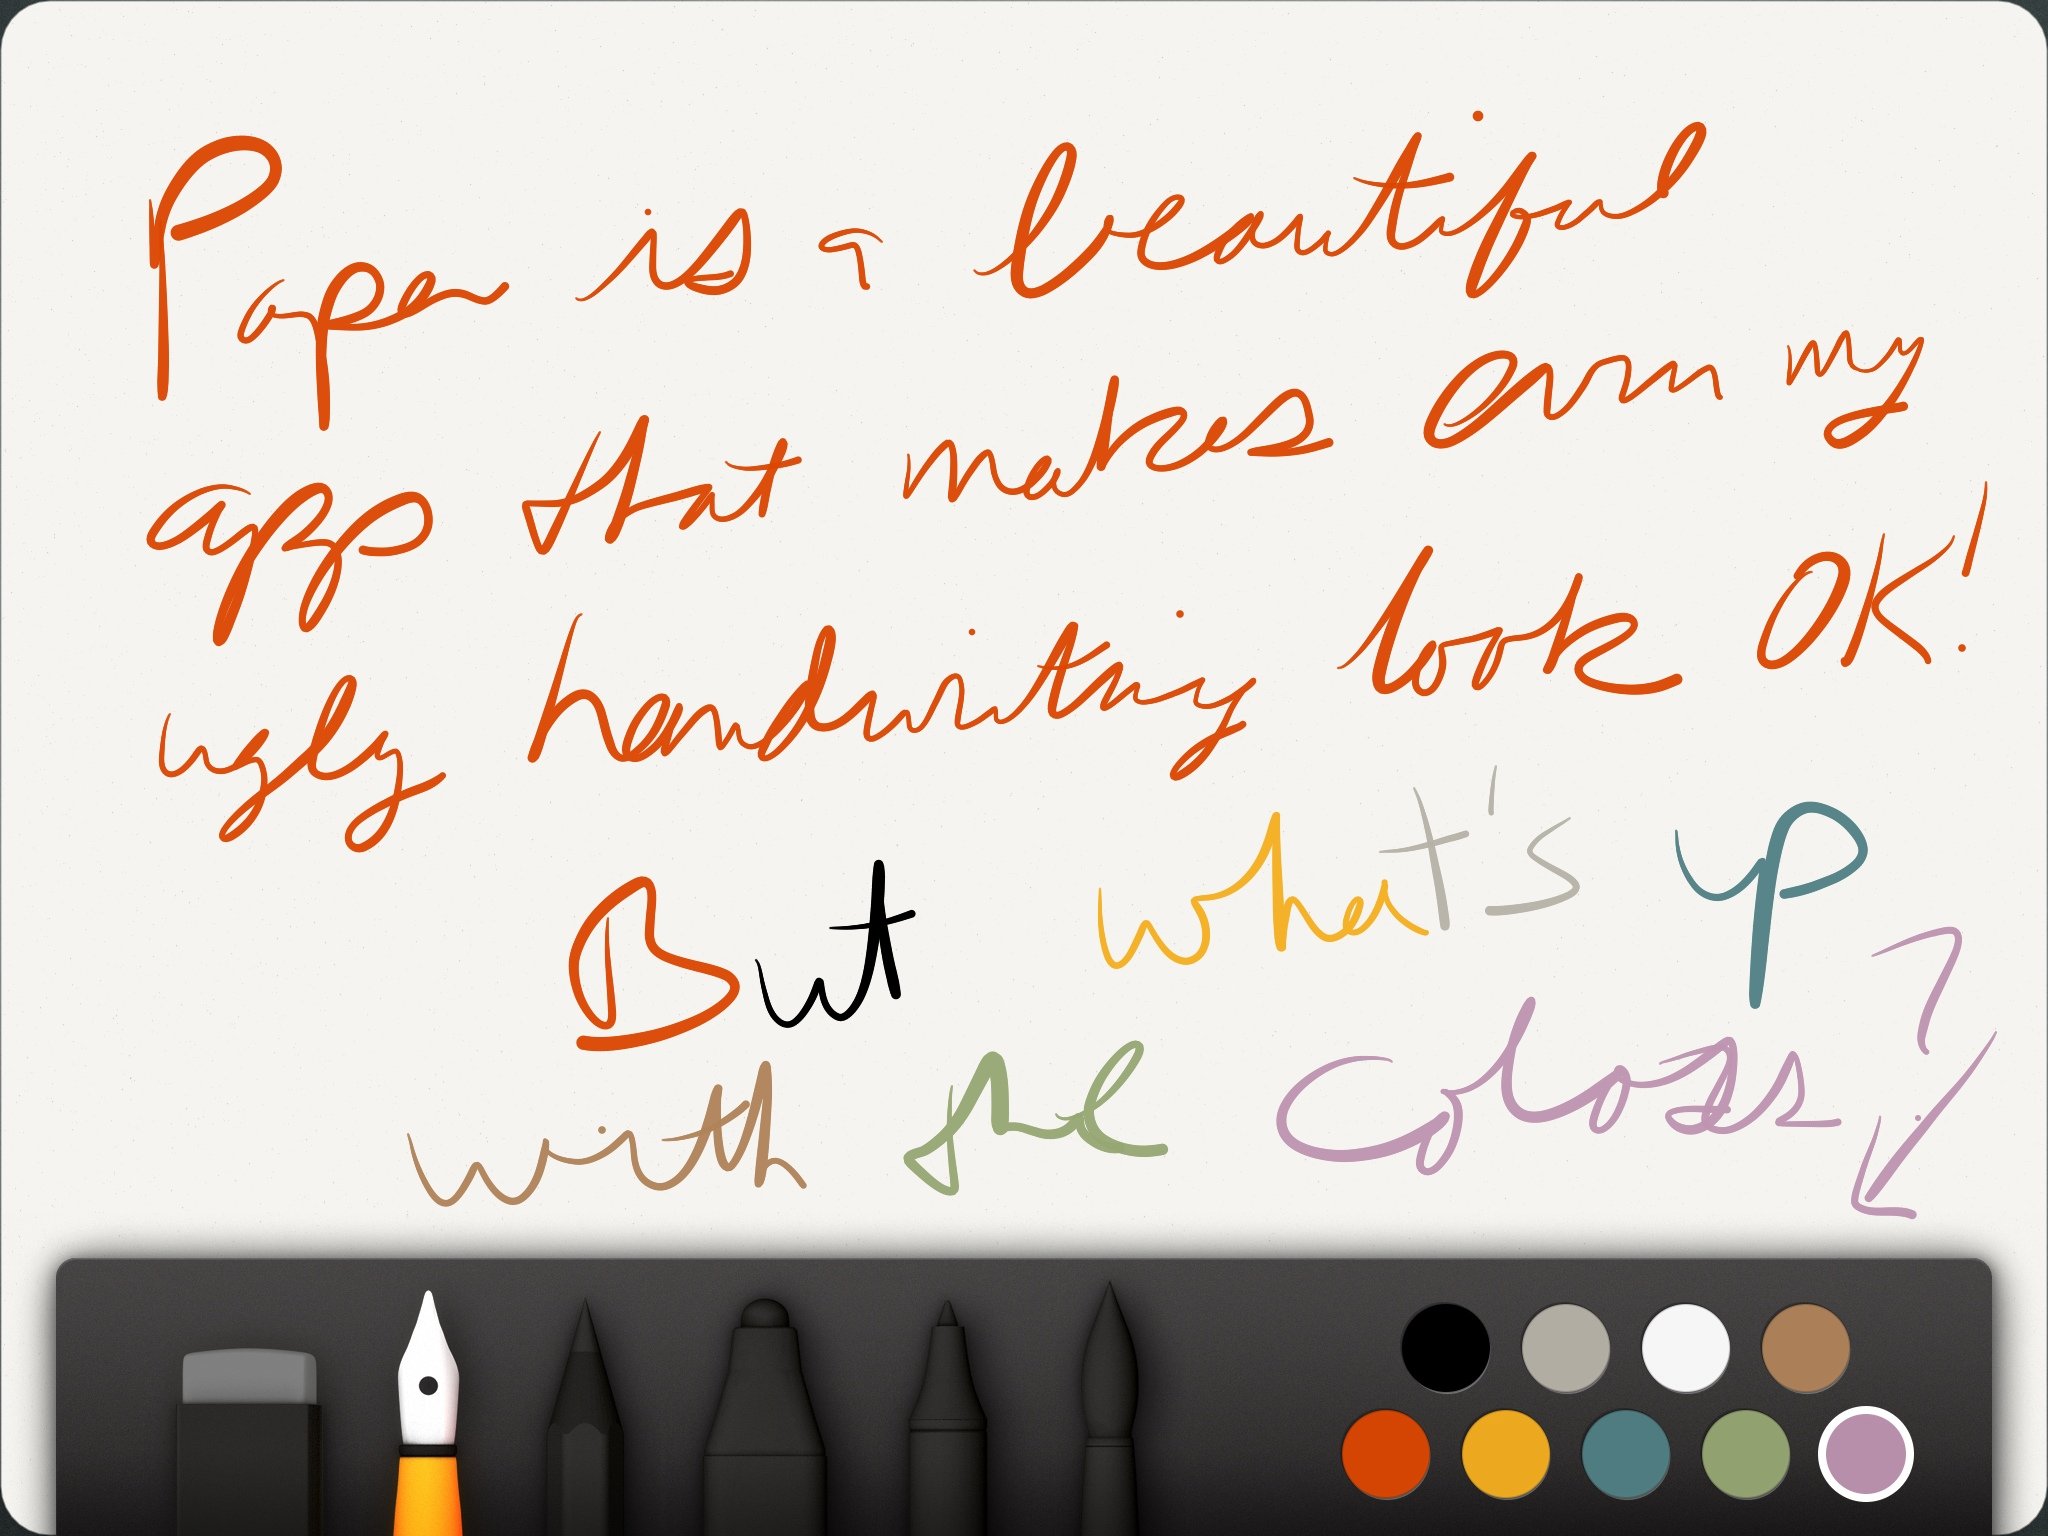 Paper is a beautiful
app that makes even my
ugly handwriting look OK!
But what's up
with the colors?